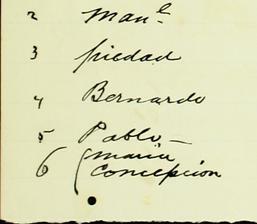 2 Man.l
3 piedad
4 Bernardo
5 Pablo —
6 (maria
Concepcion